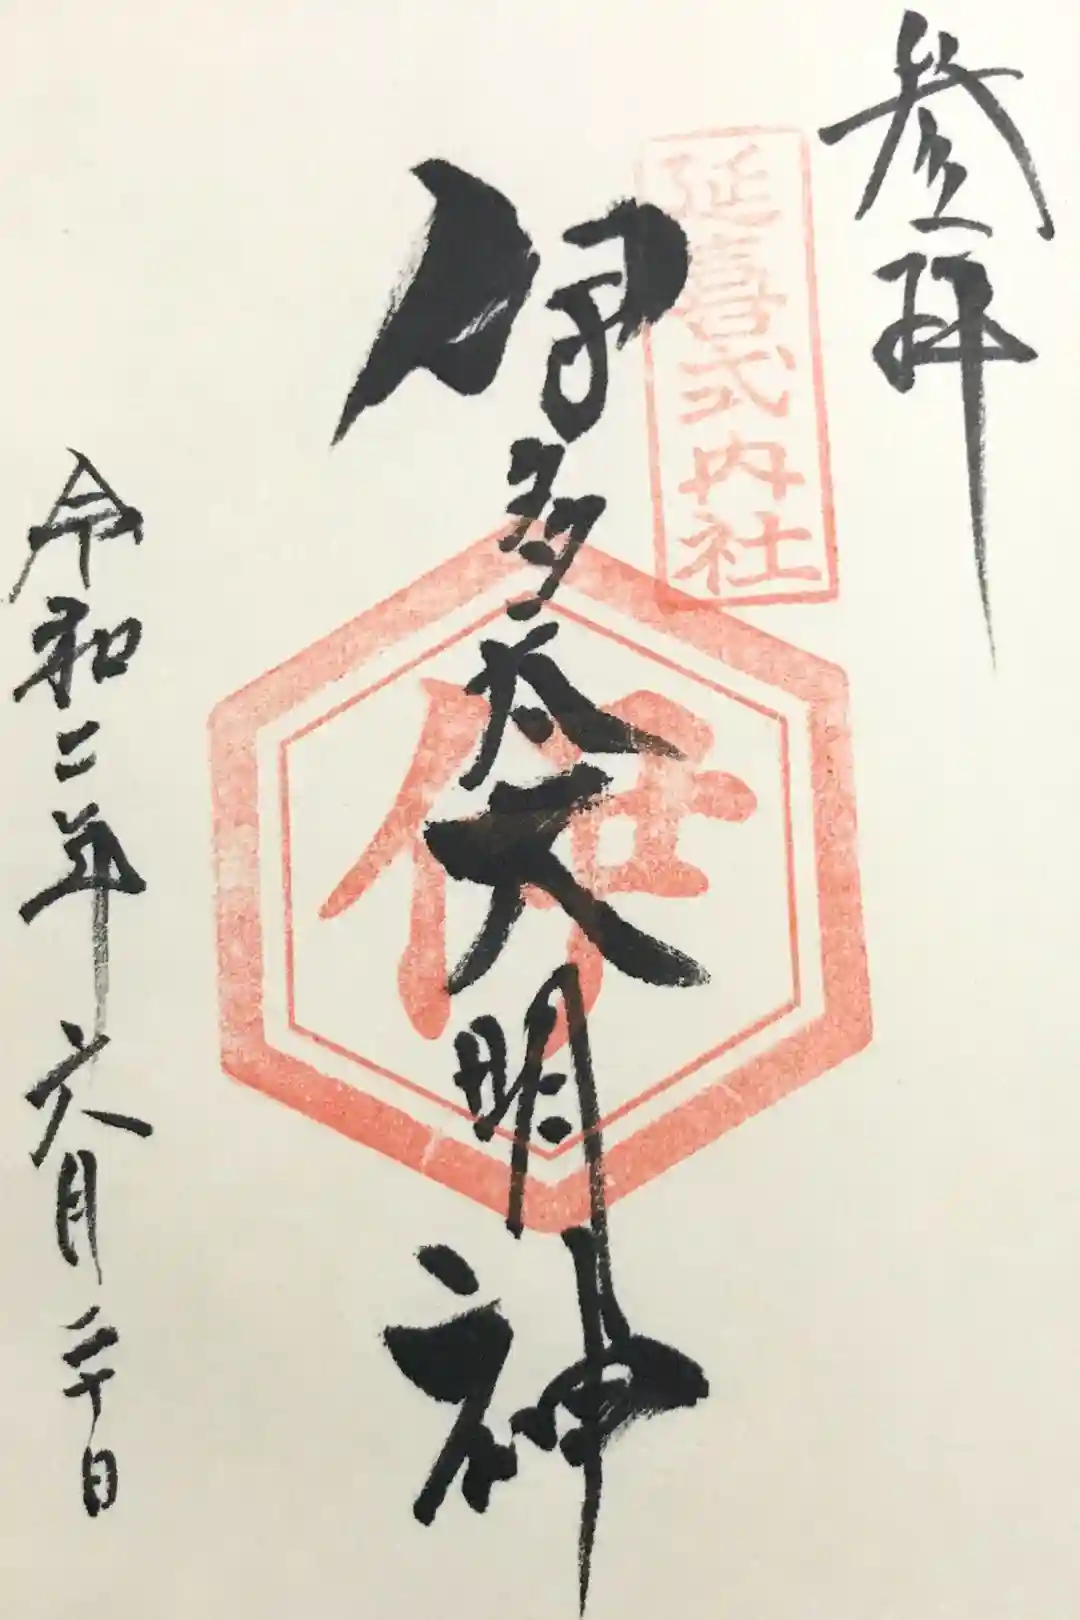 参拝
延喜式内社
伊多太大明神
伊
令和二年六月二十日